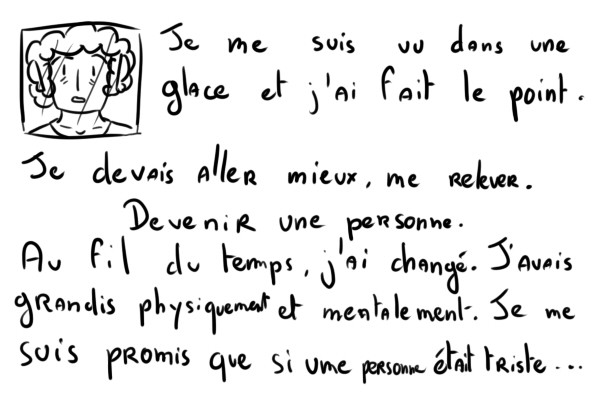 Je me suis vu dans une
glace et j'ai fait le point.
Je devais aller mieux, me relever.
Devenir une personne.
Au fil du temps, j'ai changé. J'avais
grandis physiquement et mentalement. Je me
suis promis que si une personne était triste...